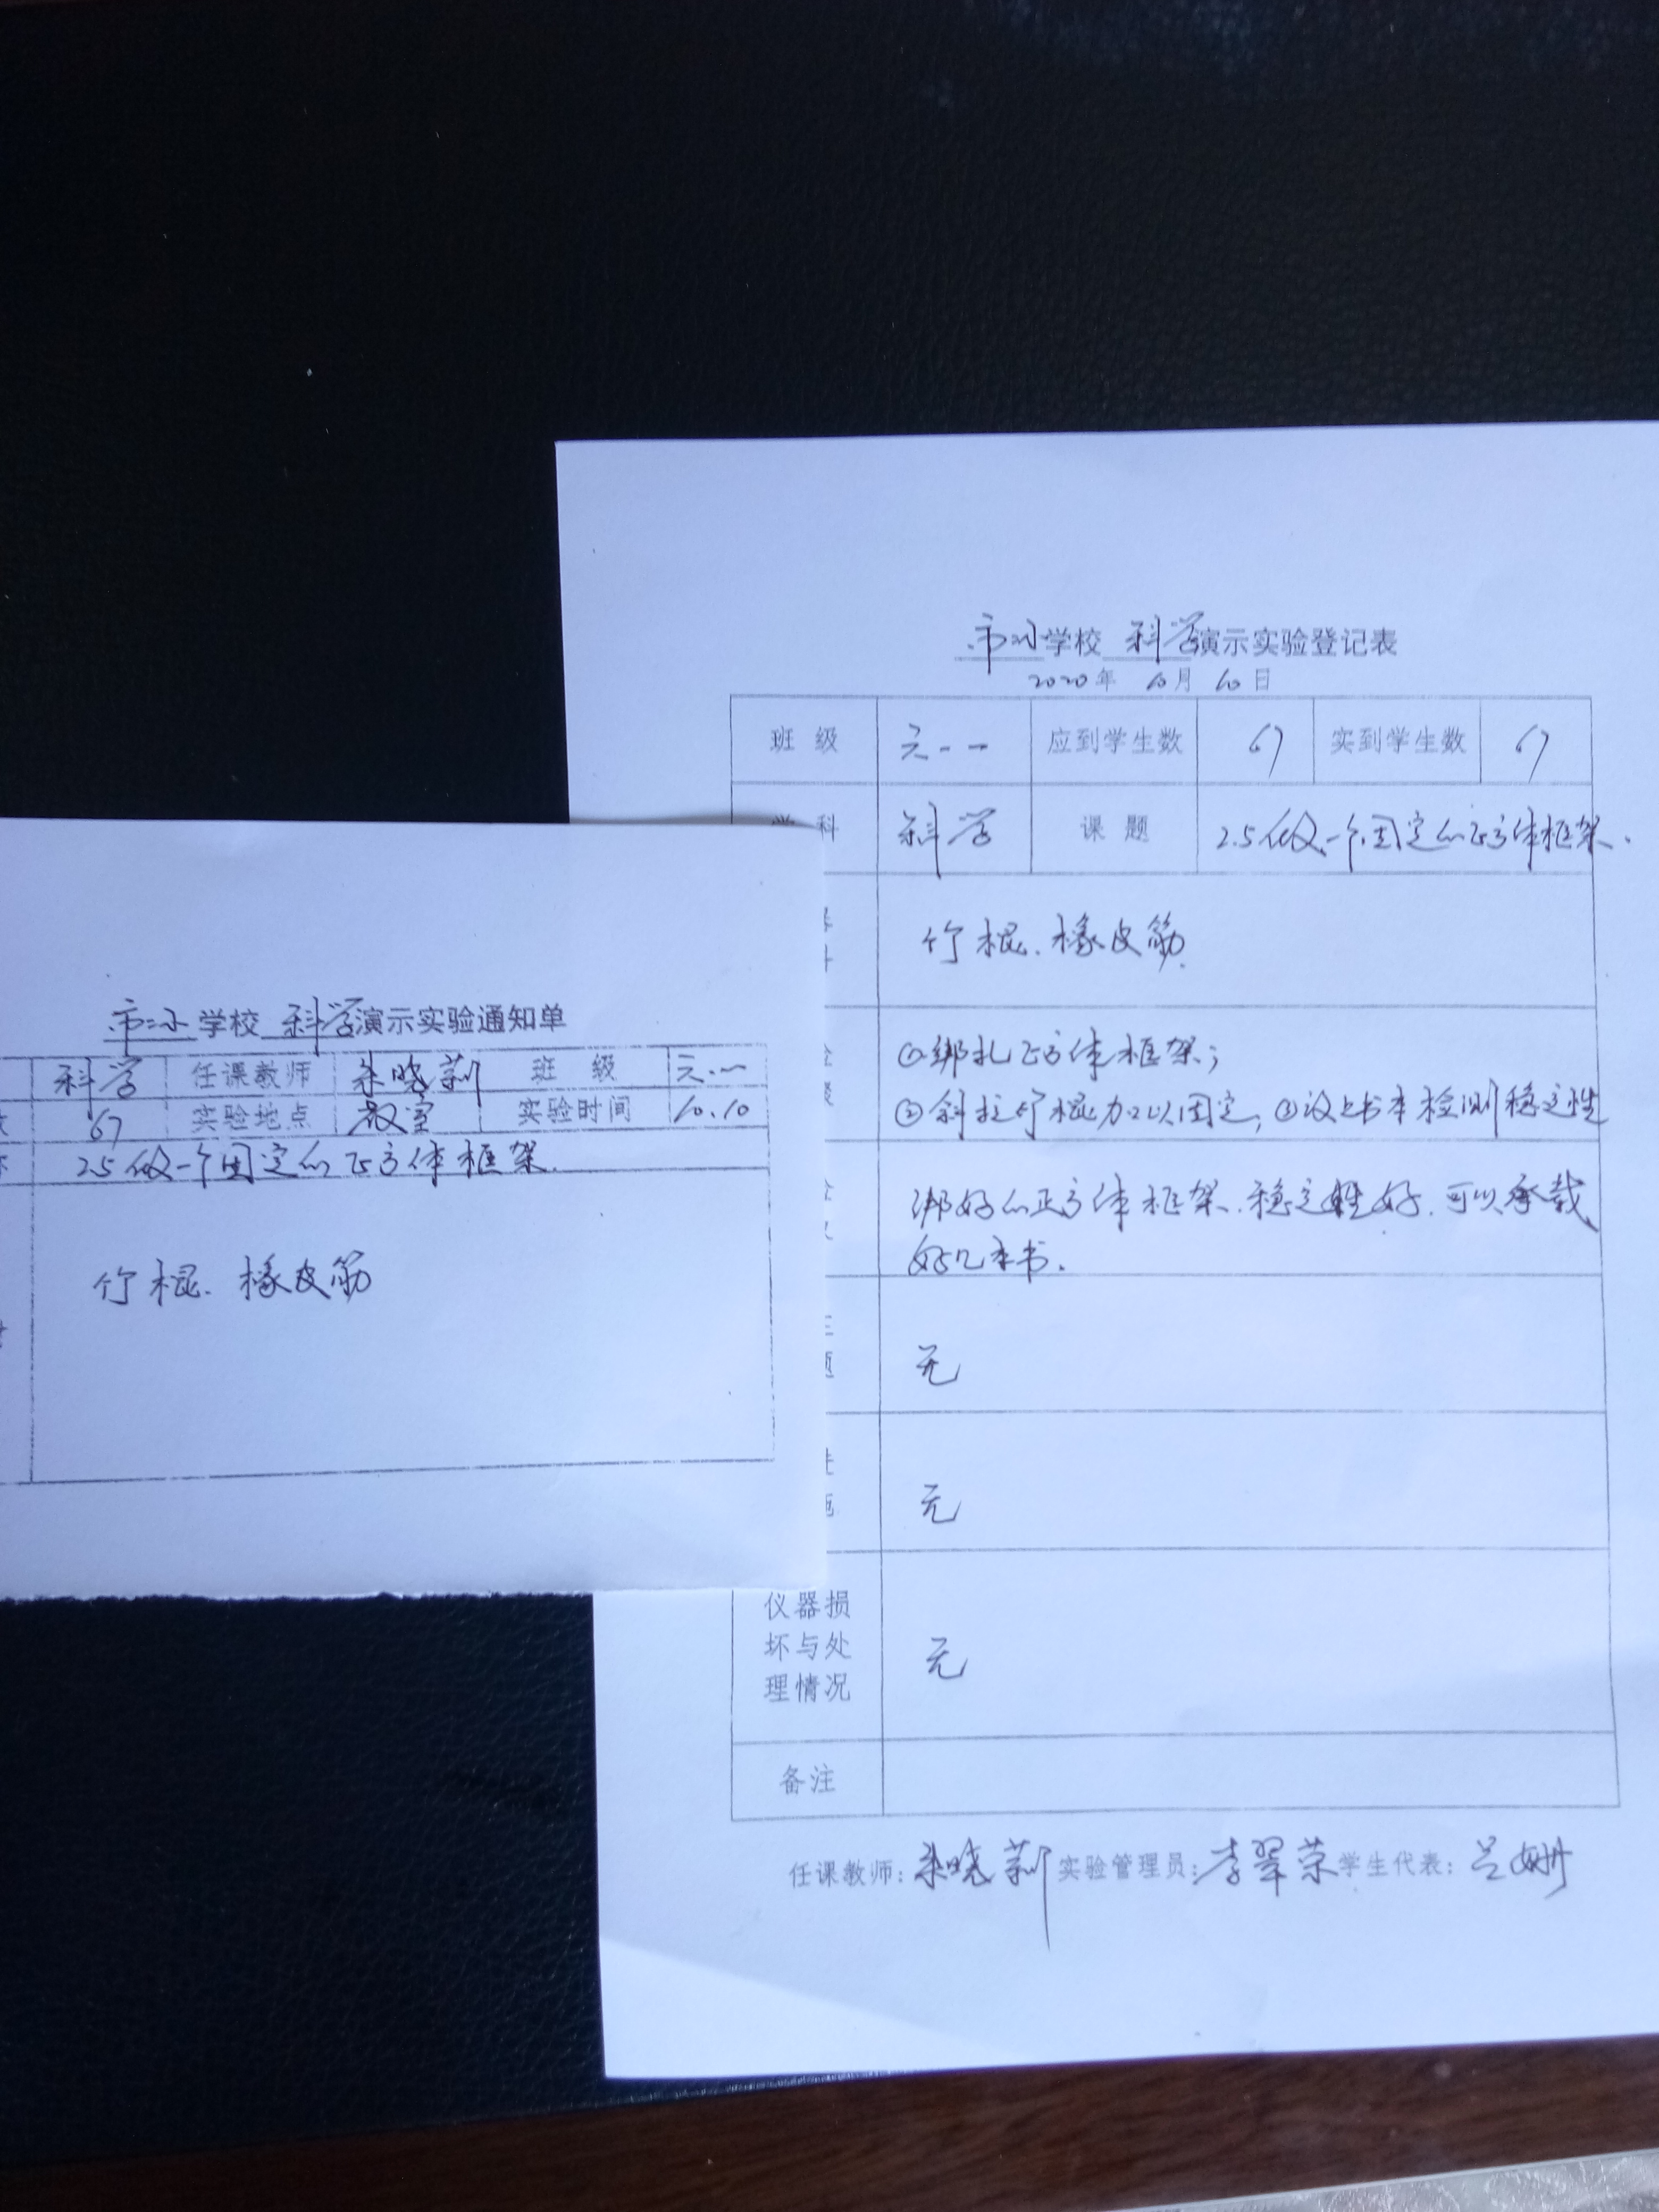 市二小学校 科学演示实验通知单
科学 任课教师 朱晓莉 班 级 六.一
67 实验地点 教室 实验时间 10.10
2.5做一个固定的正方体框架.
竹棍、橡皮筋
市二小学校 科学演示实验登记表
2020年 10月 10日
班 级 六.一 应到学生数 67 实到学生数 67
学 科 科学 课 题 2.5做一个固定的正方体框架.
竹棍、橡皮筋.
①绑扎正方体框架;
②斜拉竹棍加以固定;③放上书本检测稳定性
绑好的正方体框架.稳定性好.可以承载
好几本书.
无
无
仪器损
坏与处
理情况
无
备注
任课教师:朱晓莉 实验管理员:李翠荣 学生代表:吕姗